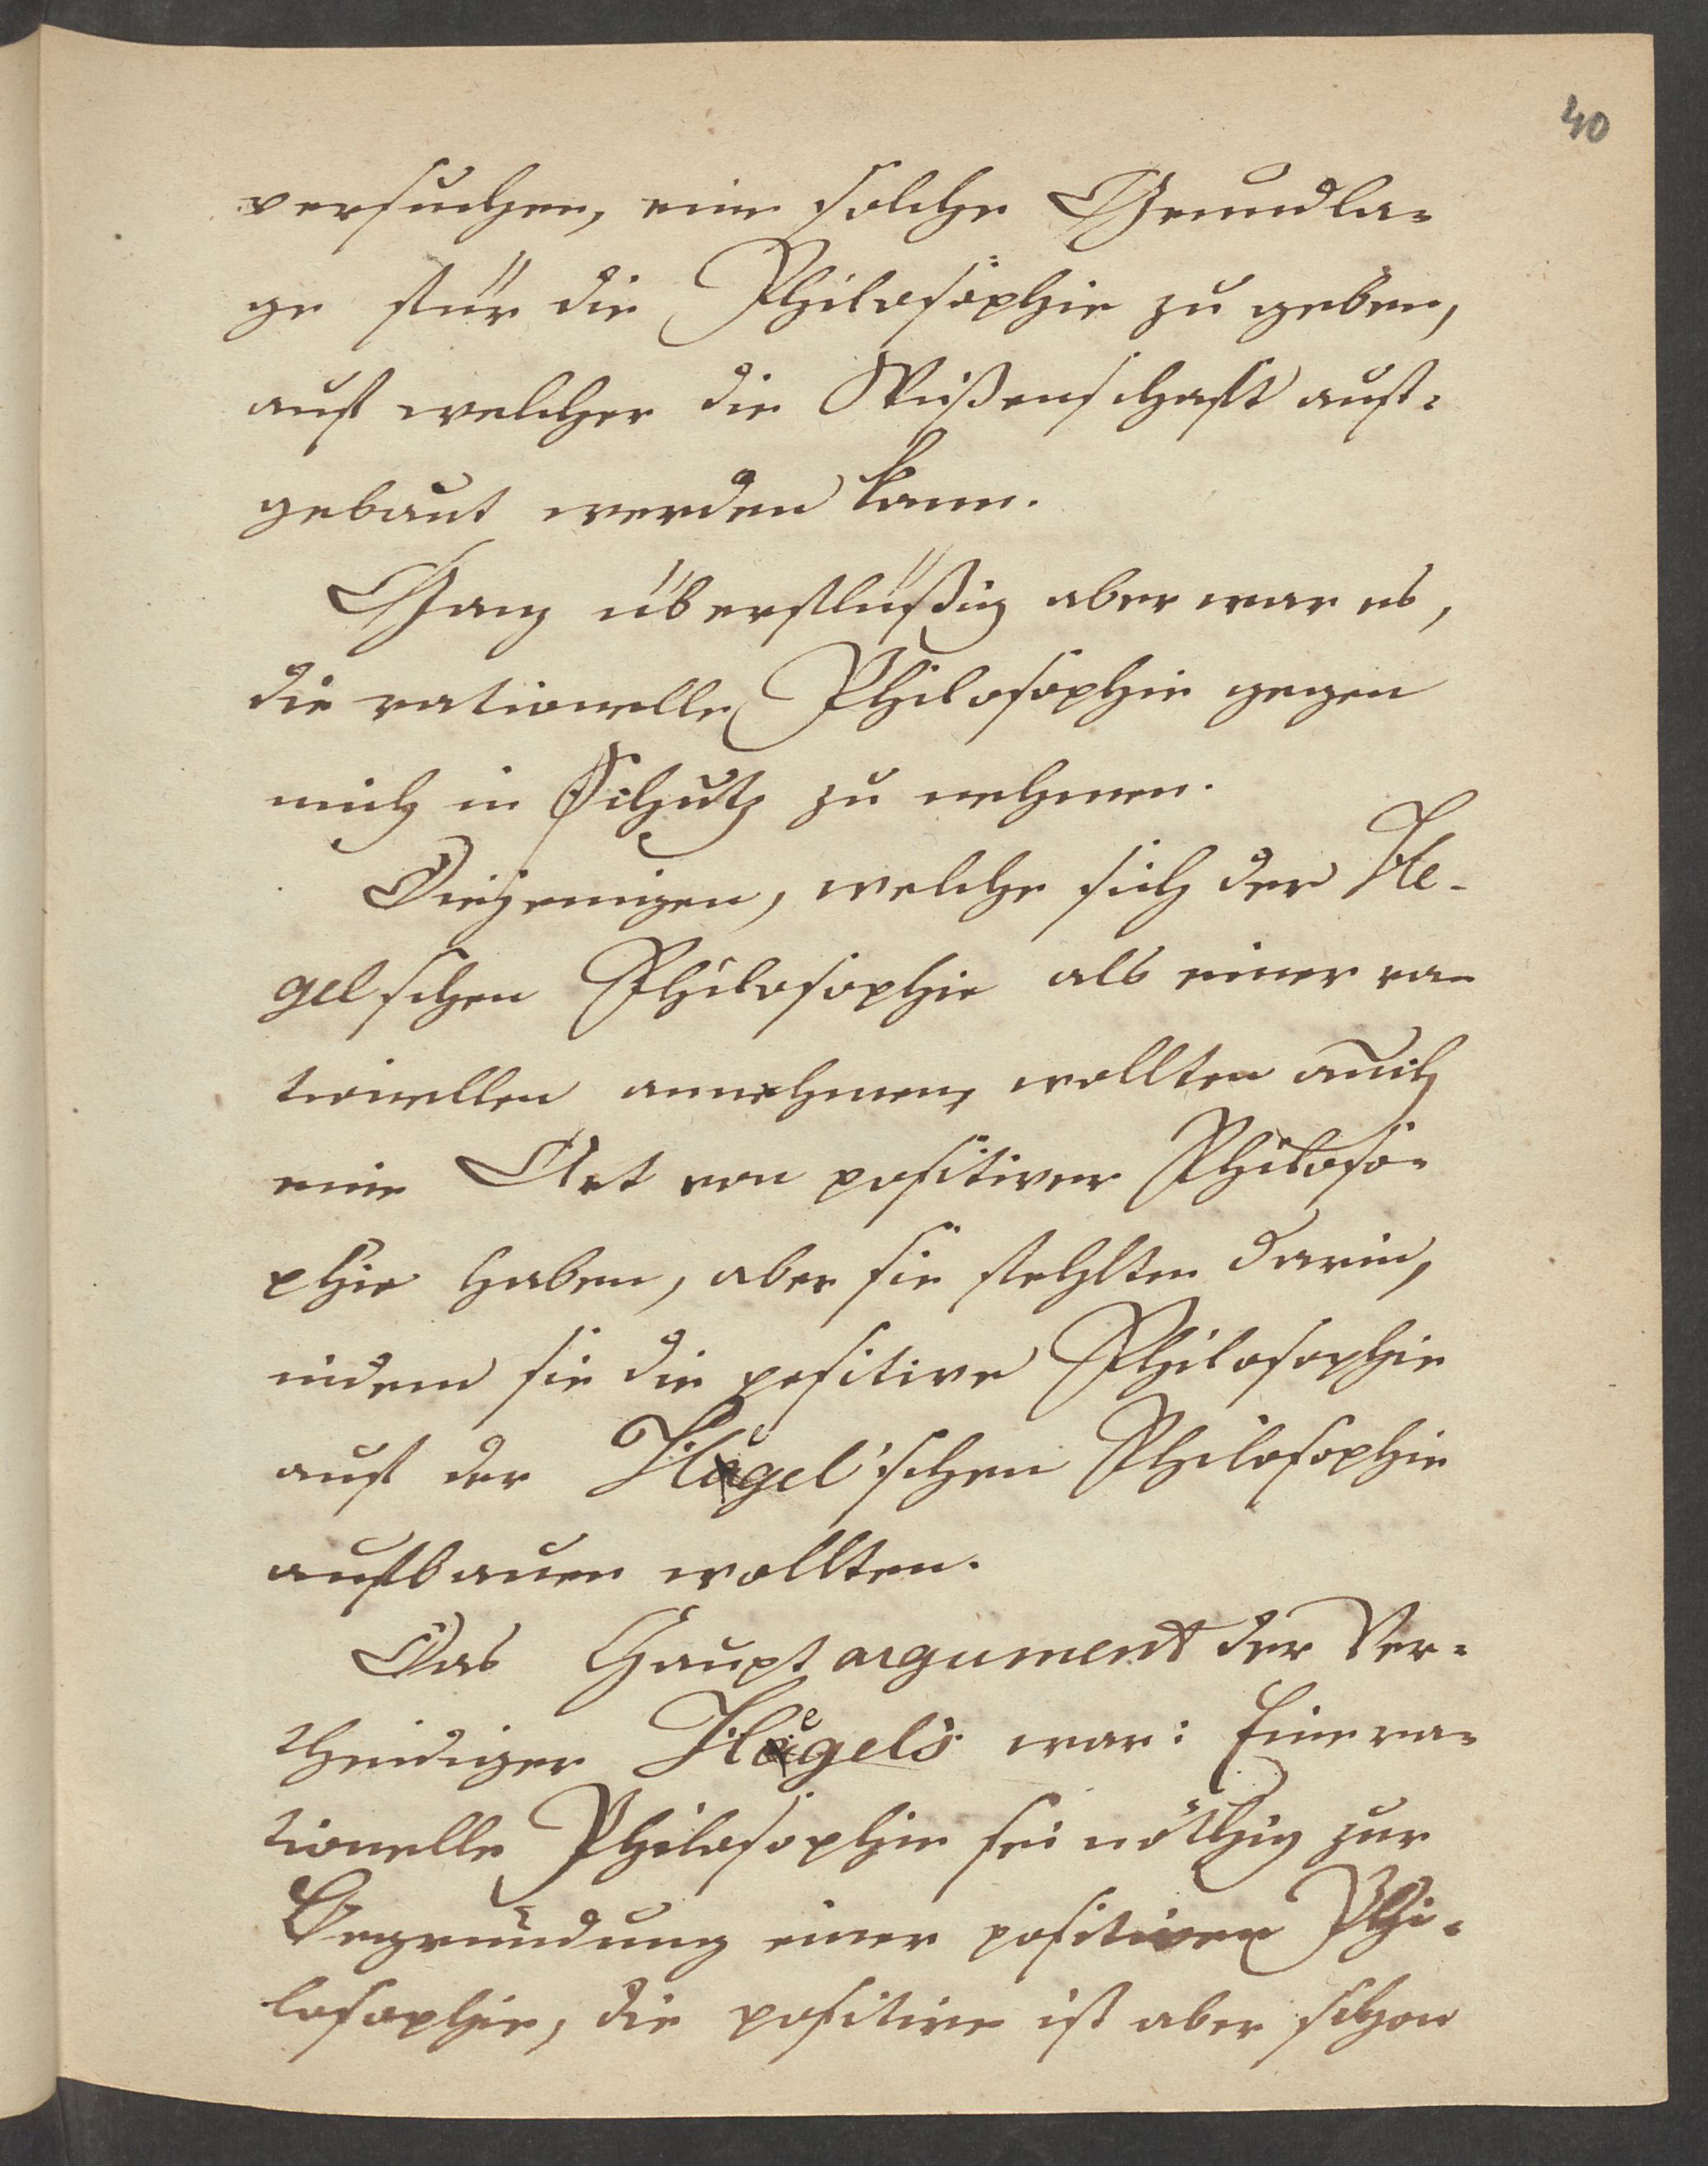 40
versuchen, eine solche Grundla-
ge für die Philosophie zu geben,
auf welcher die Wißenschaft auf-
gebaut werden kann.
Ganz überflüßig aber war es,
die rationelle Philosophie gegen
mich in Schutz zu nehmen.
Diejenigen, welche sich der He-
gelschen Philosophie als einer ra-
tionellen annehmen, wollten auch
eine Art von positiver Philoso-
phie haben, aber sie fehlten darin,
indem sie die positive Philosophie
auf der Hegel'schen Philosophie
aufbauen wollten.
Das Hauptargument der Ver-
theidiger Hegel's war: Eine ra-
tionelle Philosophie sei nöthig zur
Begründung einer positiven Phi-
losophie, die positive ist aber schon